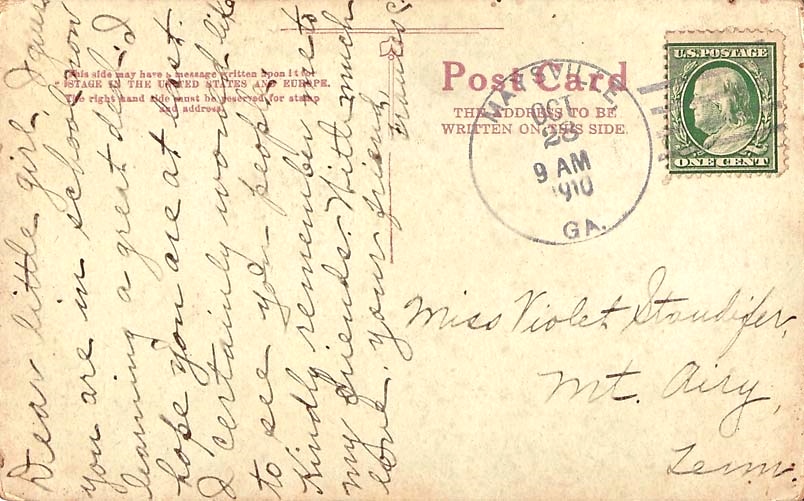 This side may have a message written upon it for
POSTAGE IN THE UNITED STATES AND EUROPE.
The right hand side must be reserved for stamp
and address.
Post Card
THE ADDRESS TO BE
WRITTEN ON THIS SIDE.
MAYSVILLE
OCT
28
9 AM
1910
GA.
U.S. POSTAGE
ONE CENT
Dear little girl, I guess
you are in school now
learning a great deal. I
hope you are at last.
I certainly would like
to see you people.
Kindly remember me to
my friends. With much
love, your friend,
Miss Violet Standifer,
Mt. Airy,
Tenn.